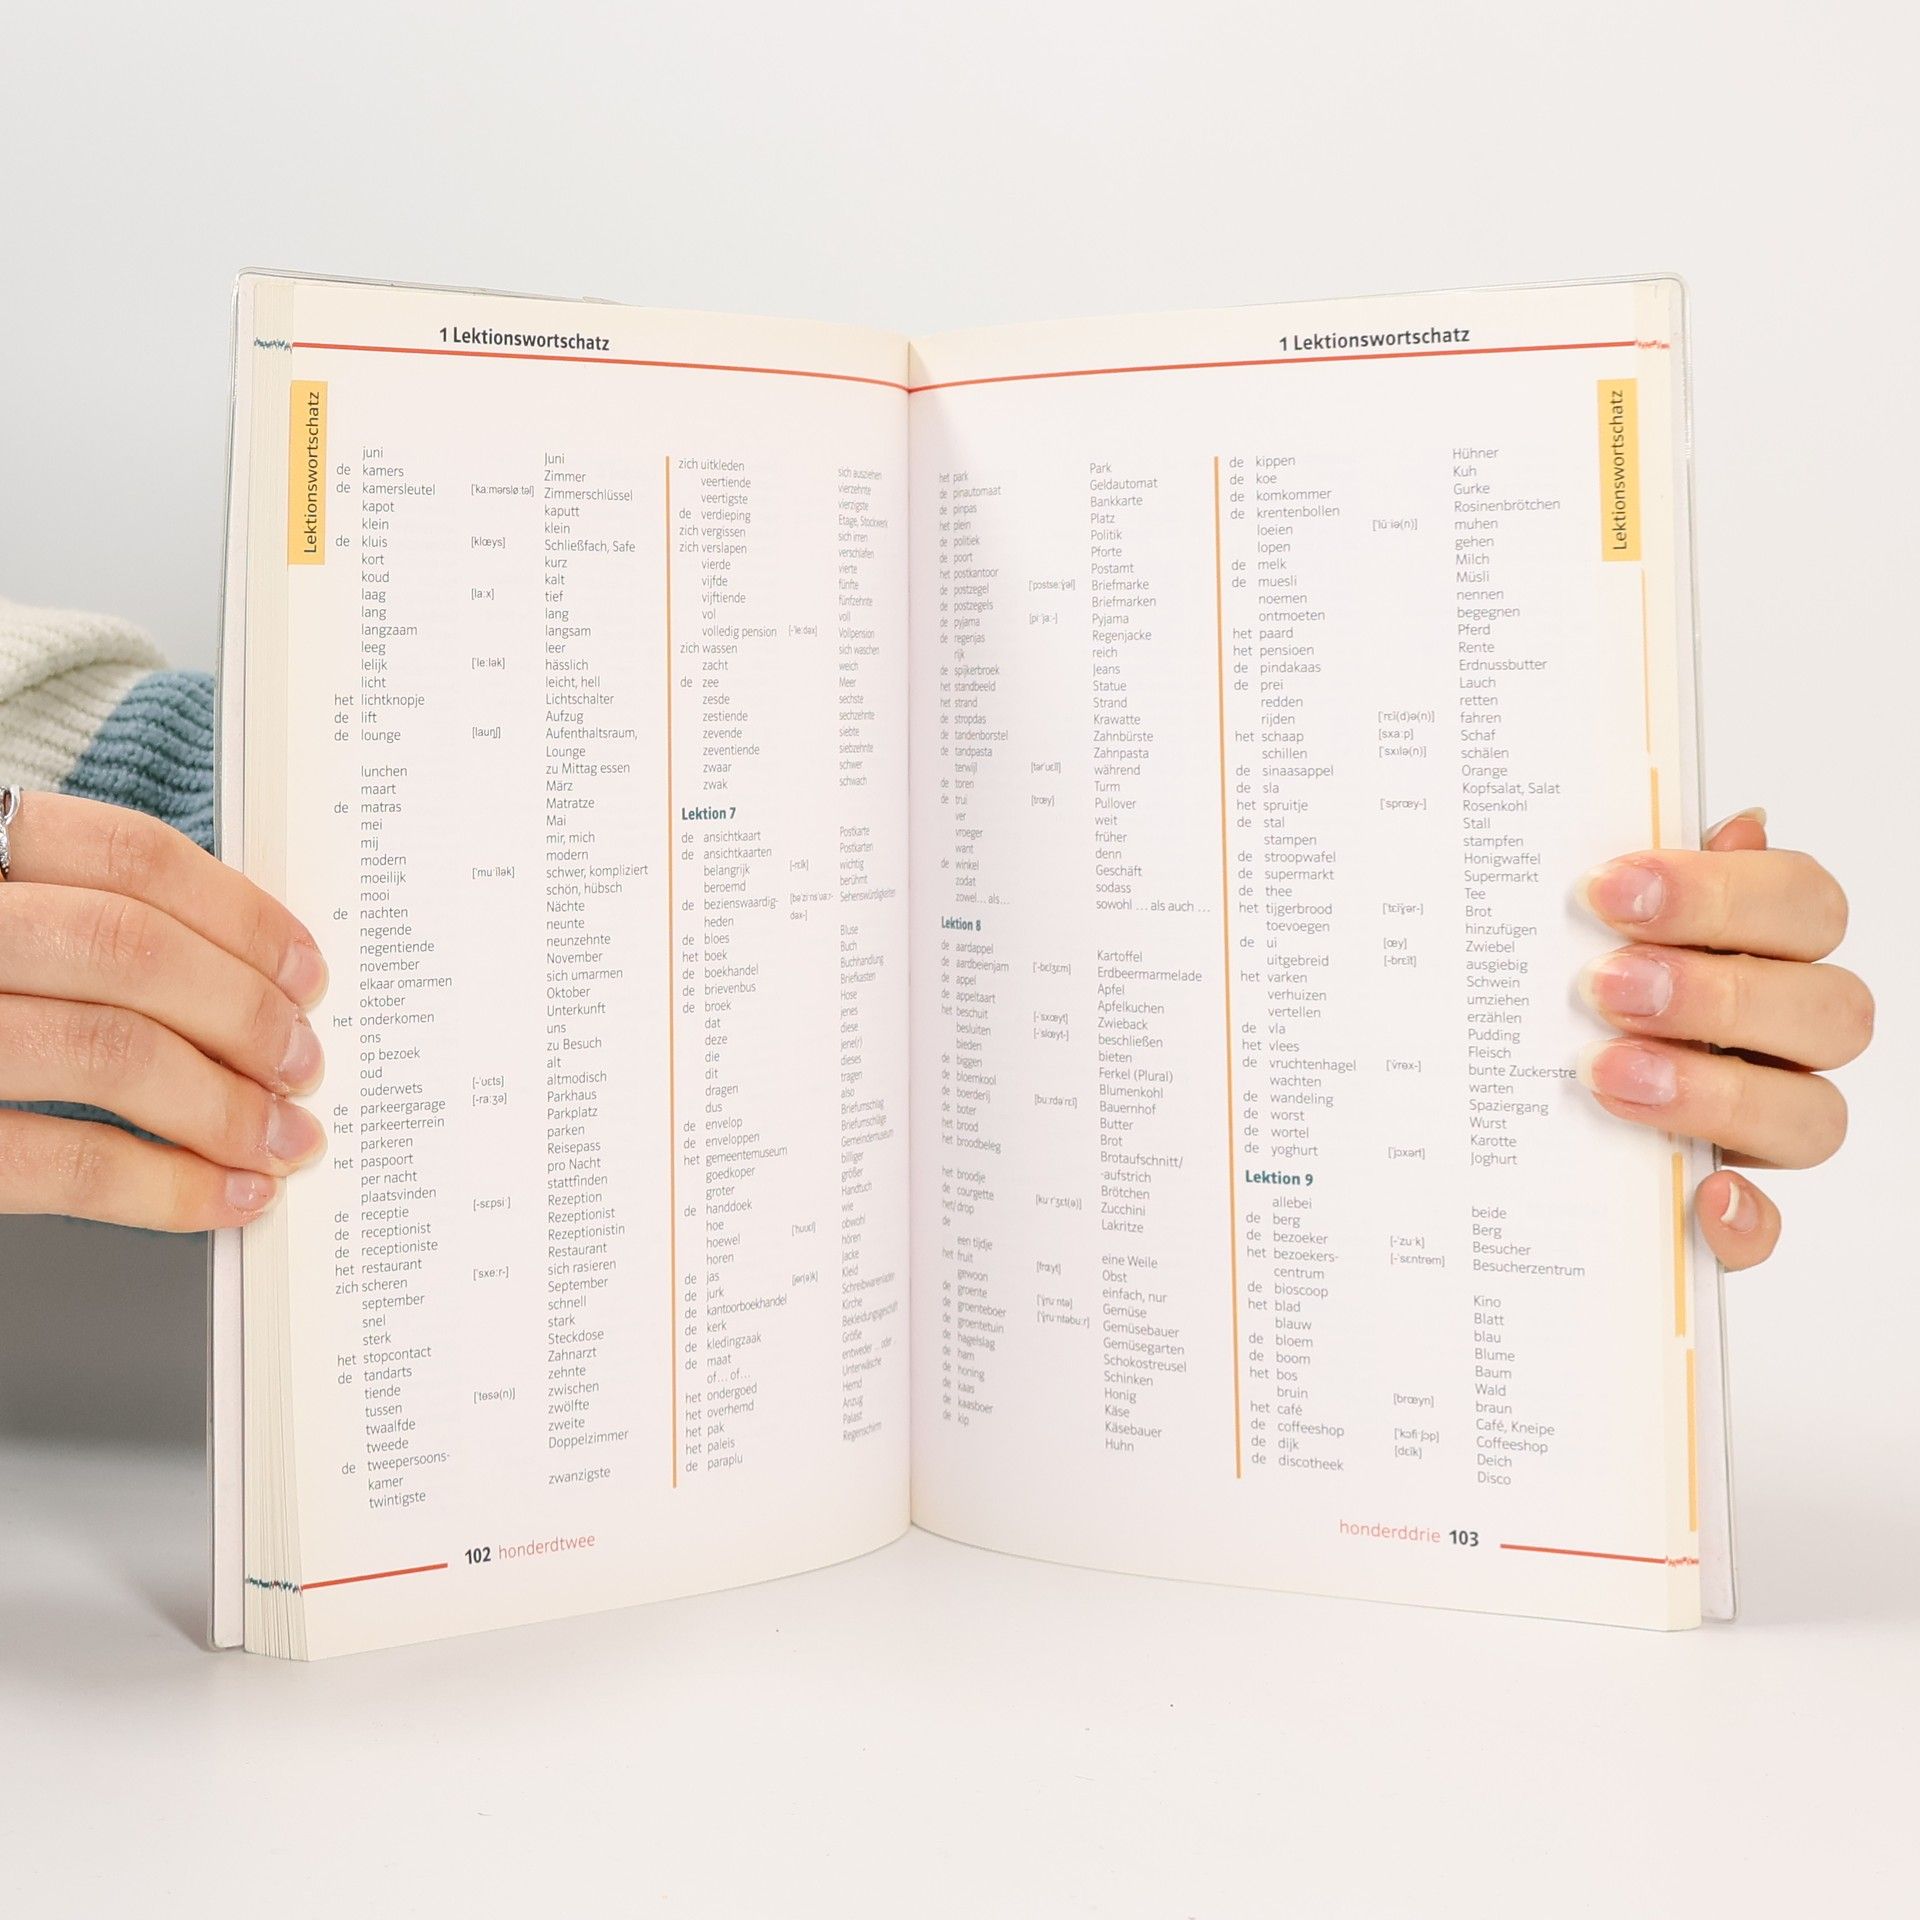 1 Lektionswortschatz
Lektionswortschatz
juni Juni
de kamers Zimmer
de kamersleutel ['ka:mərslø:təl] Zimmerschlüssel
kapot kaputt
klein klein
de kluis [klœys] Schließfach, Safe
kort kurz
koud kalt
laag [la:x] tief
lang lang
langzaam langsam
leeg leer
lelijk ['le:lək] hässlich
licht leicht, hell
het lichtknopje Lichtschalter
de lift Aufzug
de lounge [launʃ] Aufenthaltsraum,
Lounge
lunchen zu Mittag essen
maart März
de matras Matratze
mei Mai
mij mir, mich
modern modern
moeilijk ['mu·ilək] schwer, kompliziert
mooi schön, hübsch
de nachten Nächte
negende neunte
negentiende neunzehnte
november November
elkaar omarmen sich umarmen
oktober Oktober
het onderkomen Unterkunft
ons uns
op bezoek zu Besuch
oud alt
ouderwets [-'ʋɛts] altmodisch
de parkeergarage [-ra:ʒə] Parkhaus
het parkeerterrein Parkplatz
parkeren parken
het paspoort Reisepass
per nacht pro Nacht
plaatsvinden stattfinden
de receptie [-sɛpsi·] Rezeption
de receptionist Rezeptionist
de receptioniste Rezeptionistin
het restaurant Restaurant
zich scheren ['sxe:r-] sich rasieren
september September
snel schnell
sterk stark
het stopcontact Steckdose
de tandarts Zahnarzt
tiende zehnte
tussen ['tøsə(n)] zwischen
twaalfde zwölfte
tweede zweite
de tweepersoons- Doppelzimmer
kamer
twintigste zwanzigste
zich uitkleden sich ausziehen
veertiende vierzehnte
veertigste vierzigste
de verdieping Etage, Stockwerk
zich vergissen sich irren
zich verslapen verschlafen
vierde vierte
vijfde fünfte
vijftiende fünfzehnte
vol voll
volledig pension [-'le:dəx] Vollpension
zich wassen sich waschen
zacht weich
de zee Meer
zesde sechste
zestiende sechzehnte
zevende siebte
zeventiende siebzehnte
zwaar schwer
zwak schwach
Lektion 7
de ansichtkaart Postkarte
de ansichtkaarten Postkarten
belangrijk [-rɛik] wichtig
beroemd berühmt
de bezienswaardig- Sehenswürdigkeiten
heden
de bloes Bluse
het boek Buch
de boekhandel Buchhandlung
de brievenbus Briefkasten
de broek Hose
dat jenes
deze diese
die jene(r)
dit dieses
dragen tragen
dus also
de envelop Briefumschlag
de enveloppen Briefumschläge
het gemeentemuseum Gemeindemuseum
goedkoper billiger
groter größer
de handdoek Handtuch
hoe wie
hoewel obwohl
horen hören
de jas Jacke
de jurk Kleid
de kantoorboekhandel Schreibwarenladen
de kerk Kirche
de kledingzaak Bekleidungsgeschäft
de maat Größe
of... of... entweder ... oder
het ondergoed Unterwäsche
het overhemd Hemd
het pak Anzug
het paleis Palast
de paraplu Regenschirm
102 honderdtwee
1 Lektionswortschatz
Lektionswortschatz
het park Park
de pinautomaat Geldautomat
de pinpas Bankkarte
het plein Platz
de politiek Politik
de poort Pforte
het postkantoor Postamt
de postzegel Briefmarke
de postzegels Briefmarken
de pyjama [pi·'ja:-] Pyjama
de regenjas Regenjacke
rijk reich
de spijkerbroek Jeans
het standbeeld Statue
het strand Strand
de stropdas Krawatte
de tandenborstel Zahnbürste
de tandpasta Zahnpasta
terwijl während
de toren Turm
de trui [trœy] Pullover
ver weit
vroeger früher
want denn
de winkel Geschäft
zodat sodass
zowel... als... sowohl ... als auch ...
Lektion 8
de aardappel Kartoffel
de aardbeienjam Erdbeermarmelade
de appel Apfel
de appeltaart Apfelkuchen
het beschuit [-'sxœyt] Zwieback
besluiten [-'slœyt-] beschließen
bieden bieten
de biggen Ferkel (Plural)
de bloemkool Blumenkohl
de boerderij Bauernhof
de boter Butter
het brood Brot
het broodbeleg Brotaufschnitt/
-aufstrich
het broodje Brötchen
de courgette Zucchini
het/ drop Lakritze
de
een tijdje eine Weile
het fruit [frœyt] Obst
gewoon einfach, nur
de groente Gemüse
de groenteboer Gemüsebauer
de groentetuin Gemüsegarten
de hagelslag Schokostreusel
de ham Schinken
de honing Honig
de kaas Käse
de kaasboer Käsebauer
de kip Huhn
de kippen Hühner
de koe Kuh
de komkommer Gurke
de krentenbollen Rosinenbrötchen
loeien ['lu·iə(n)] muhen
lopen gehen
de melk Milch
de muesli Müsli
noemen nennen
ontmoeten begegnen
het paard Pferd
het pensioen Rente
de pindakaas Erdnussbutter
de prei Lauch
redden retten
rijden ['rɛi(d)ə(n)] fahren
het schaap [sxa:p] Schaf
schillen ['sxɪlə(n)] schälen
de sinaasappel Orange
de sla Kopfsalat, Salat
het spruitje ['sprœy-] Rosenkohl
de stal Stall
stampen stampfen
de stroopwafel Honigwaffel
de supermarkt Supermarkt
de thee Tee
het tijgerbrood ['tɛiɣər-] Brot
toevoegen hinzufügen
de ui [œy] Zwiebel
uitgebreid [-brɛit] ausgiebig
het varken Schwein
verhuizen umziehen
vertellen erzählen
de vla Pudding
het vlees Fleisch
de vruchtenhagel ['vrøx-] bunte Zuckerstre
wachten warten
de wandeling Spaziergang
de worst Wurst
de wortel Karotte
de yoghurt ['jɔxərt] Joghurt
Lektion 9
allebei beide
de berg Berg
de bezoeker [-'zu·k] Besucher
het bezoekers- [-'sɛntrəm] Besucherzentrum
centrum
de bioscoop Kino
het blad Blatt
blauw blau
de bloem Blume
de boom Baum
het bos Wald
bruin [brœyn] braun
het café Café, Kneipe
de coffeeshop ['kɔfi·ʃɔp] Coffeeshop
de dijk [dɛik] Deich
de discotheek Disco
honderddrie 103